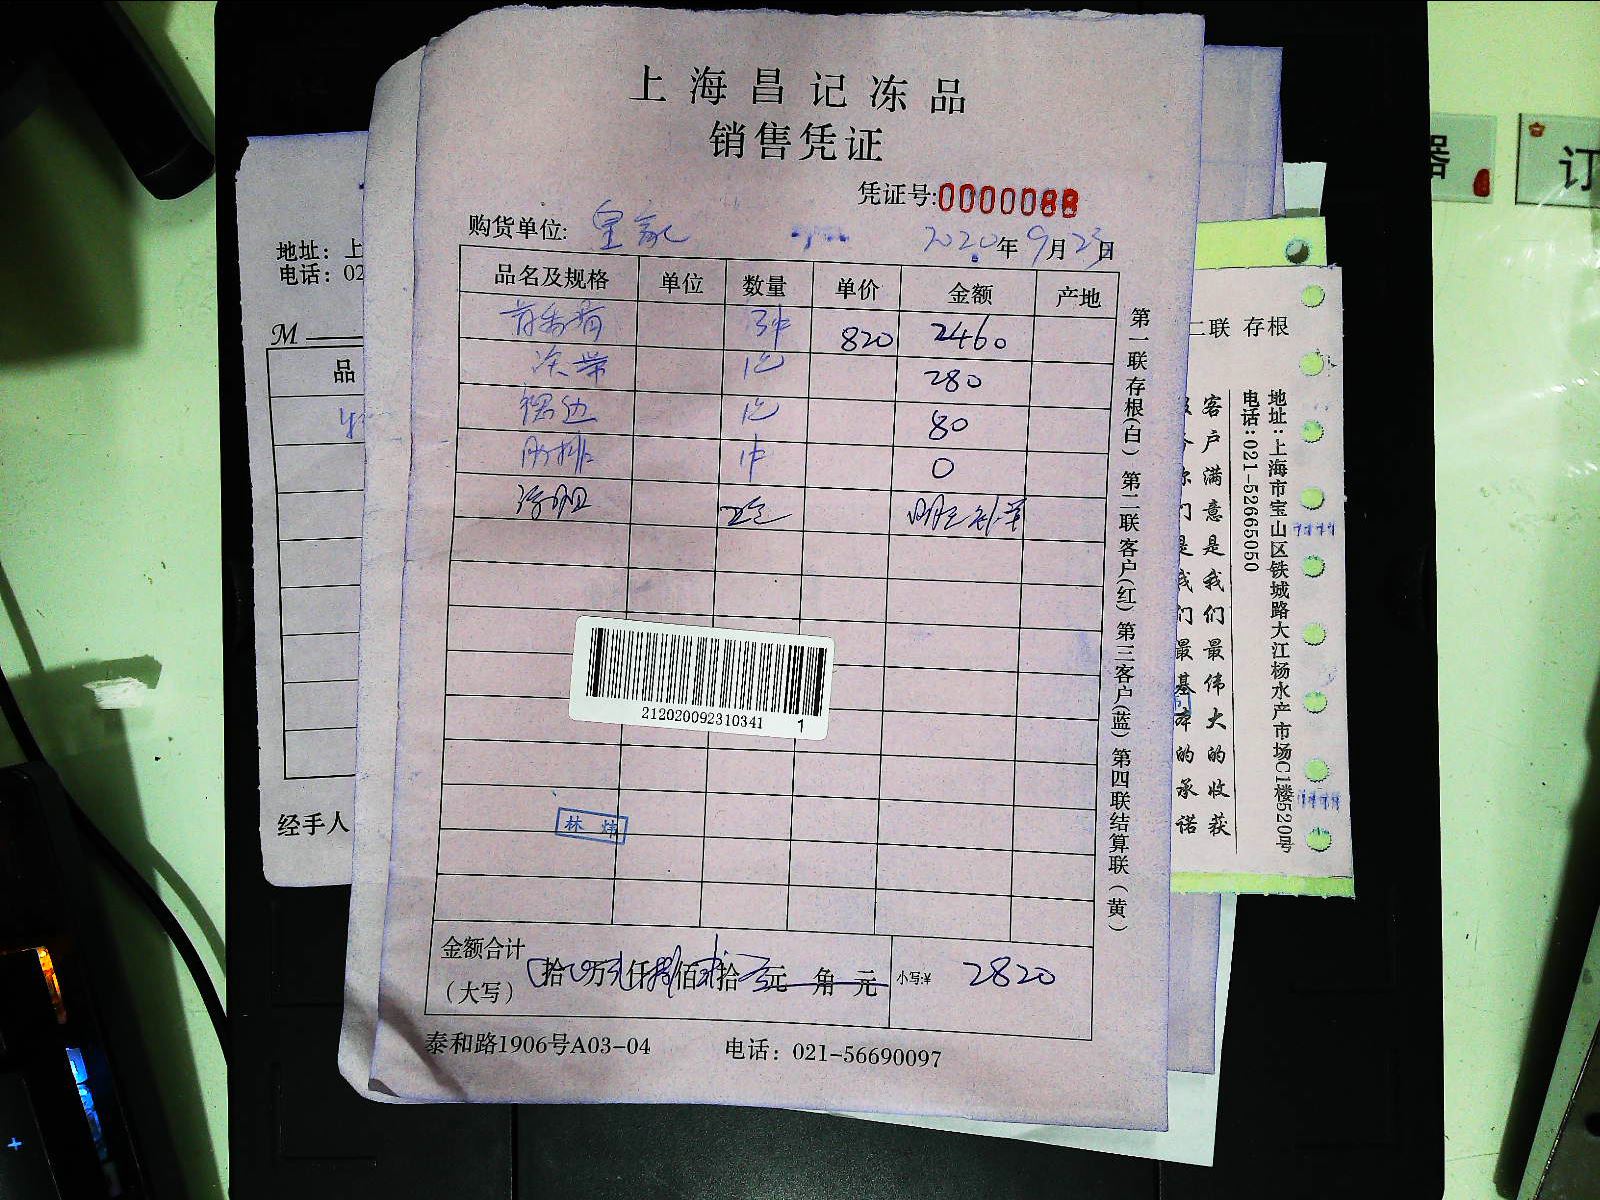 上海昌记冻品
销售凭证
凭证号:0000088
购货单位: 皇家 2020年9月23日
品名及规格 单位 数量 单价 金额 产地
3件 820 2460
280
裙边 80
肉排 1件 0
明天补单
212020092310341 1
林炜
金额合计
(大写)
拾 万 仟 佰 拾 元 角 元
小写:¥ 2820
泰和路1906号A03-04 电话: 021-56690097
第一联存根(白) 第二联客户(红) 第三客户(蓝) 第四联结算联(黄)
地址: 上
电话: 02
M
品
经手人
二联 存根
客户满意是我们最伟大的收获
是我们最基本的承诺
电话:021-52665050
地址:上海市宝山区铁城路大江杨水产市场C1楼520号
器
订